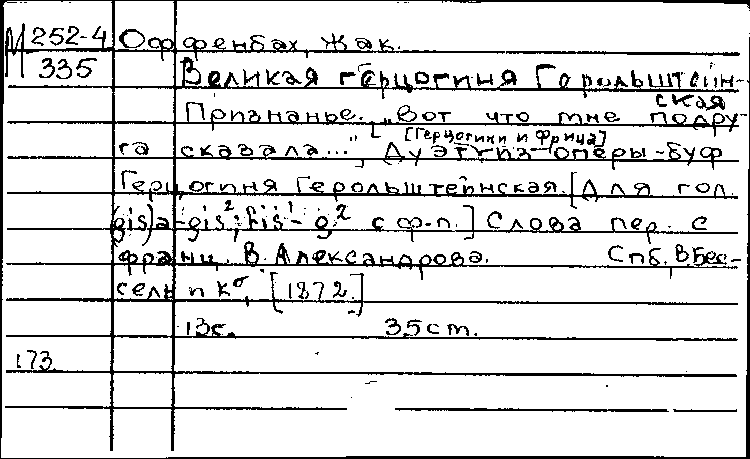 М 252-4 Оффенбах, Жак.
335 Великая герцогиня Герольштейн-
ская
Признанье. „Вот что мне подру
[Герцогини и Фрица]
га сказала...", Дуэт из оперы-буф
Герцогиня Герольштейнская. [Для гол.
(gis)a-gis²; his¹- g² с ф-п.] Слова пер. с
франц. В. Александрова. Спб, В Бес-
сель и К⁰, [1872.]
13с. 35 cm.
173.